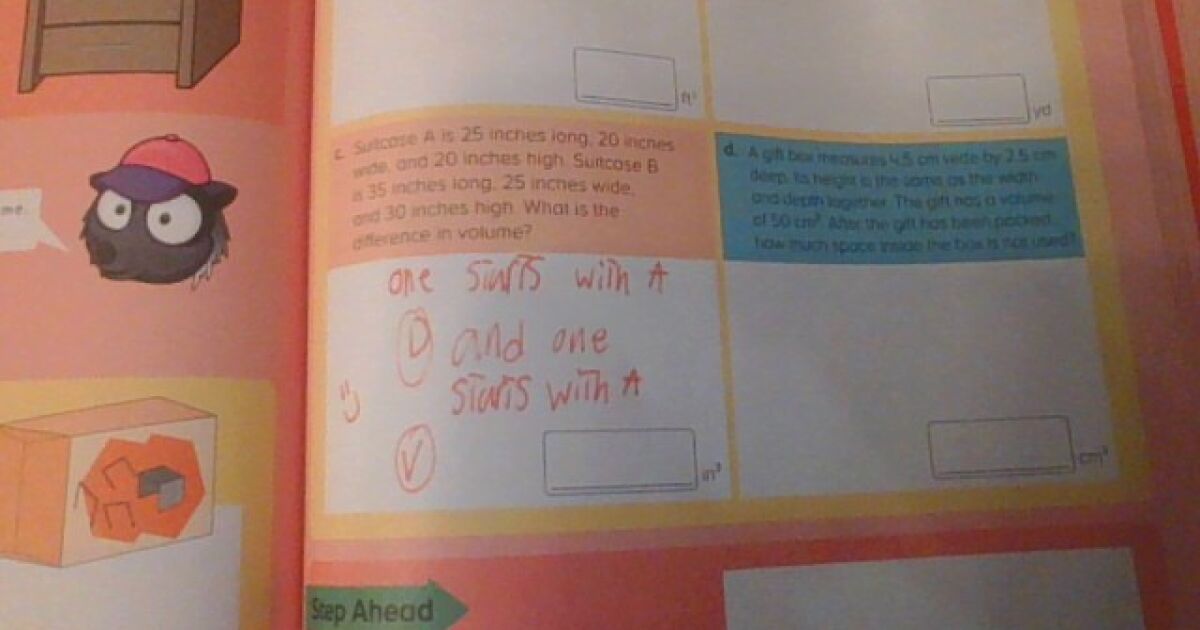 ft³
yd
me.
c. Suitcase A is 25 inches long, 20 inches
wide, and 20 inches high. Suitcase B
is 35 inches long, 25 inches wide,
and 30 inches high. What is the
difference in volume?
one starts with A
D and one
starts with A
V
in³
d. A gift box measures 4.5 cm wide by 2.5 cm
deep. Its height is the same as the width
and depth together. The gift has a volume
of 50 cm³. After the gift has been packed,
how much space inside the box is not used?
cm³
Step Ahead